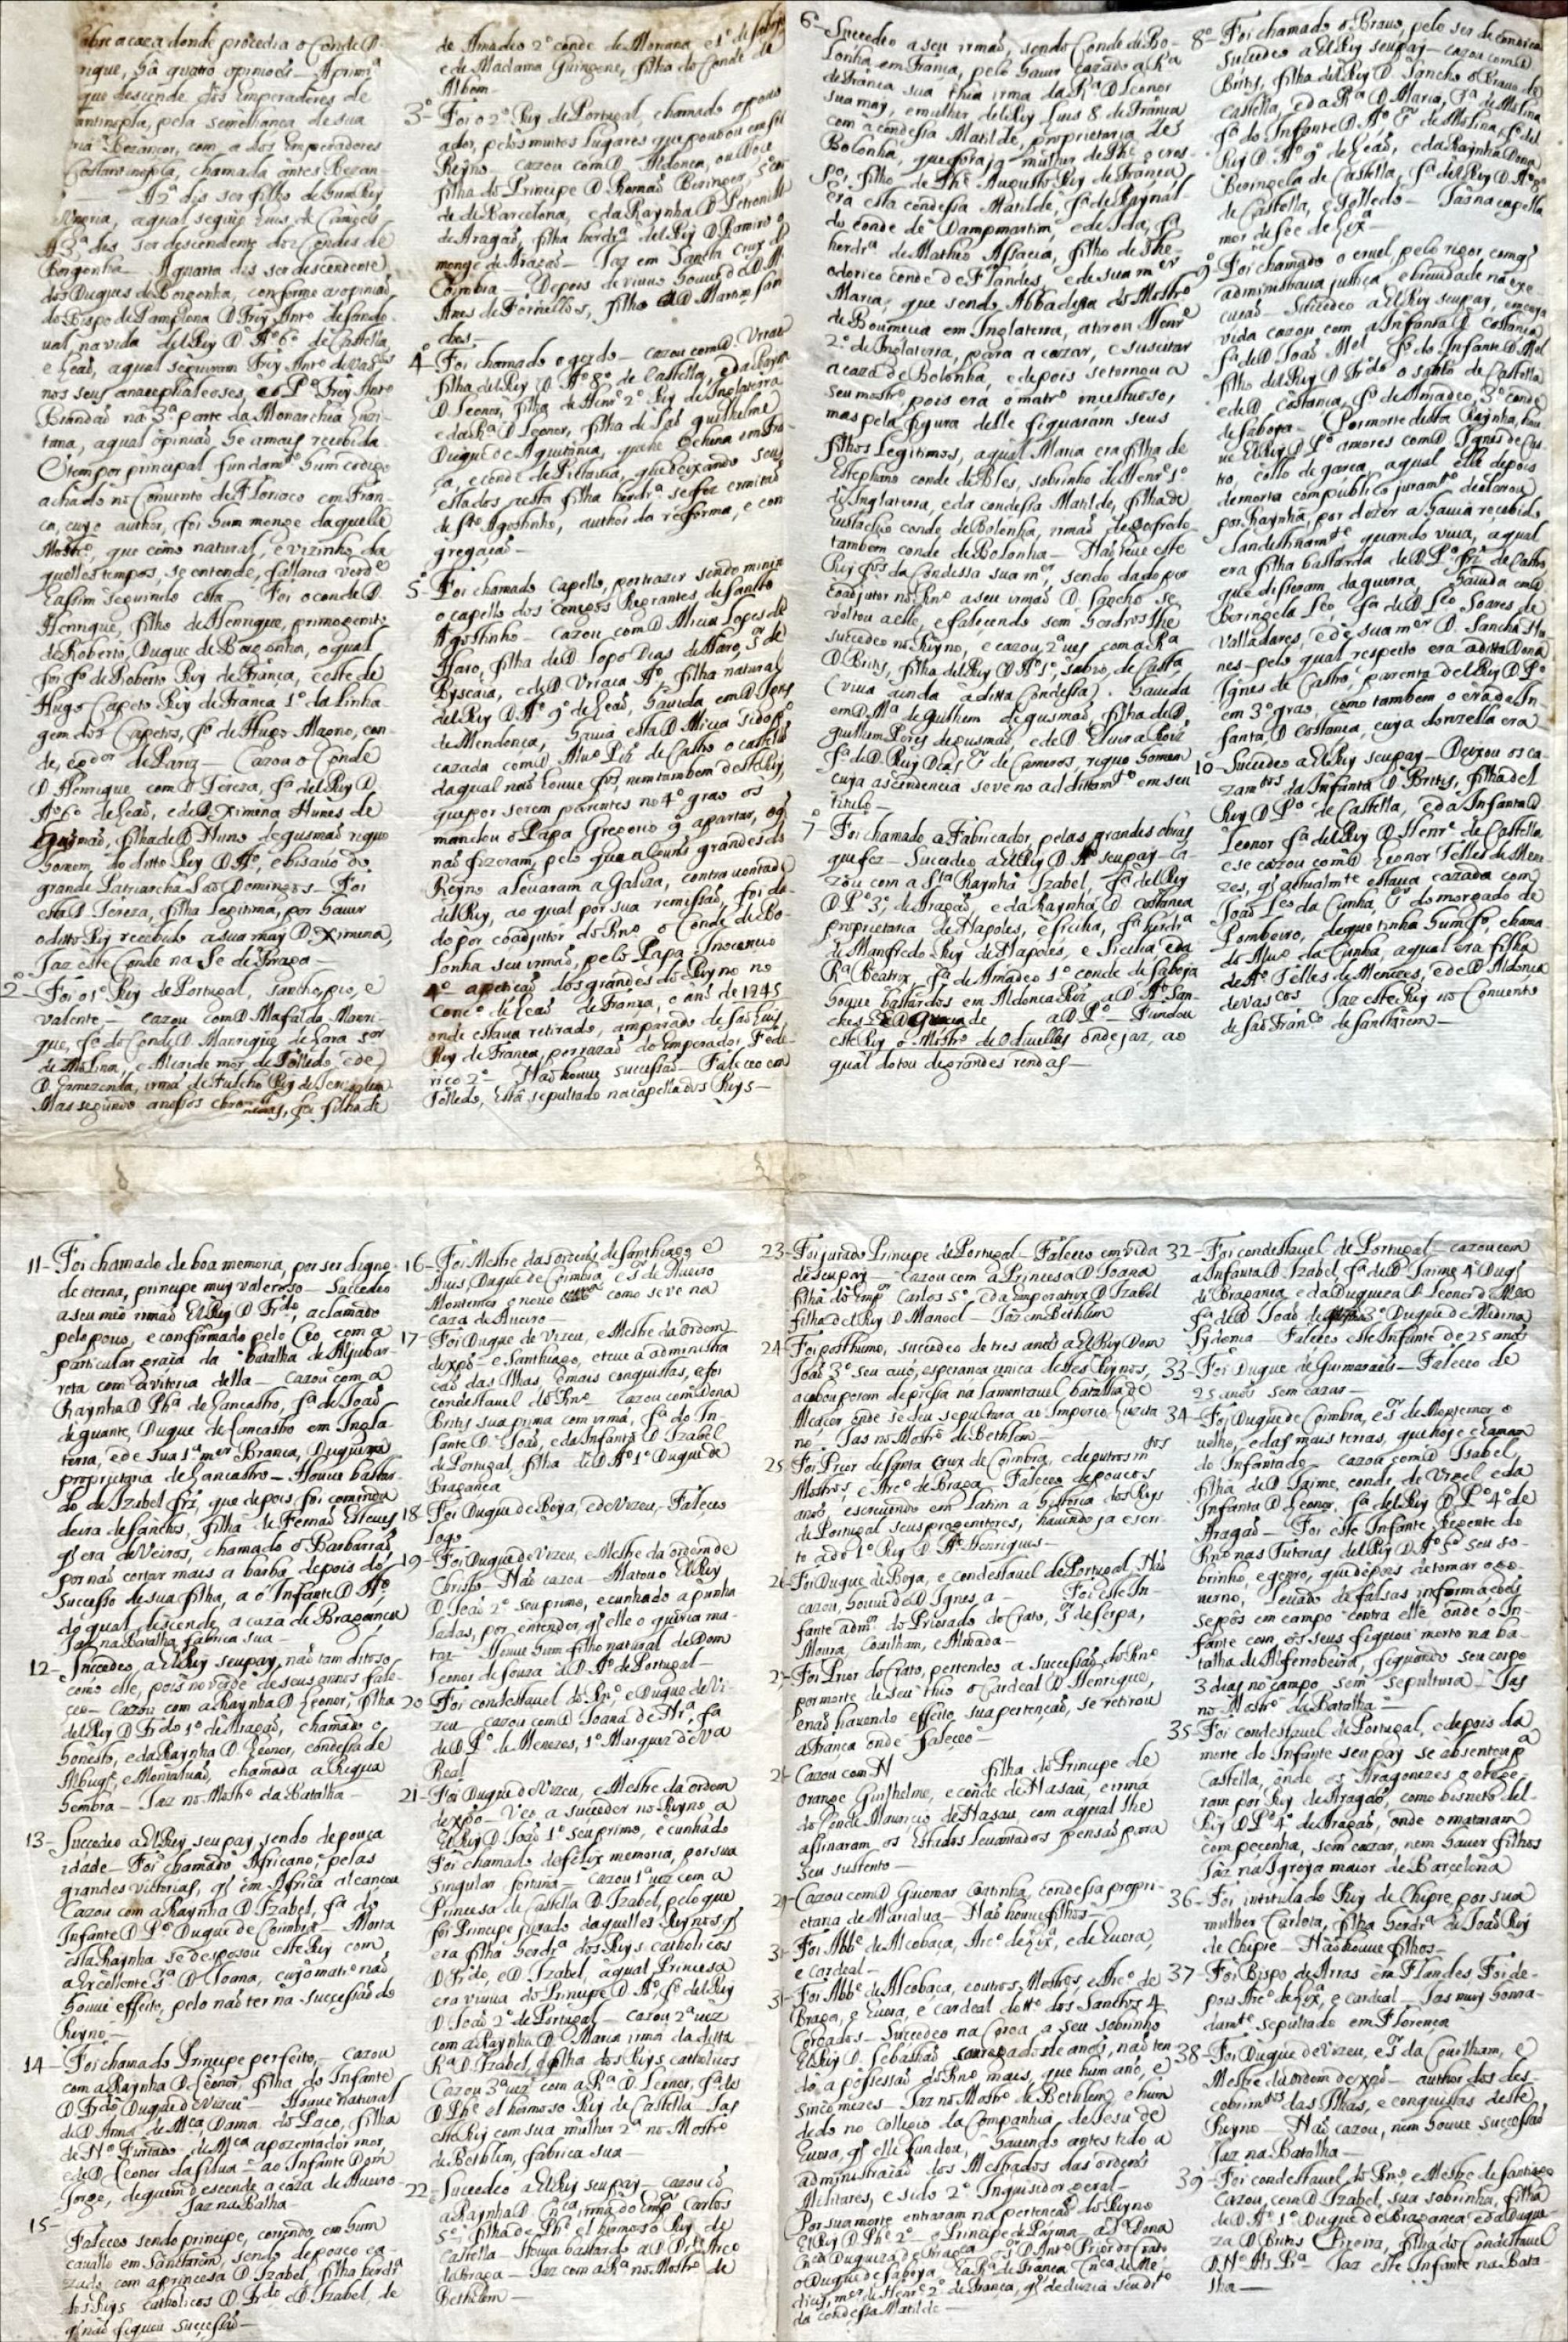 sobre a caza donde procedia o Conde D.
rique, hâ quatro opinioẽs — A primrª
que descende dos Emperadores de
antinopla, pela semelhança de sua
Bezançon, com a dos Emperadores
Costantinopla, chamada antes Bezan-
A 2ª dis ser filho de hum Rey
Ungria, a qual seguio Luis de Camoẽs
A 3ª dis ser descendente dos Condes de
Borgonha — A quarta dis ser descendente
dos Duques de Borgonha, conforme a opiniaõ
do Bispo de Pamplona D. Frey Antº de Sando-
ual, na vida del Rey D. Aº 6º de Castella,
e Leaõ, a qual seguiram Frey Antº de Vascõs
nos seus anacephaleoses, e o Pº Frey Antº
Brandaõ na 3ª parte da Monarchia Luzi-
tana, a qual opiniaõ, he a mais recebida
E tem por principal fundamto hum codigo
achado no Conuento de Floriaco em Fran-
ça, cujo author, foi hum monge daquelle
Mostrº, que como natural, e vizinho da
quelles tempos, se entende, fallaria verdº
E assim seguindo esta — Foi o conde D.
Henrique, filho de Henrique, primogenito
de Roberto, Duque de Borgonha, o qual
foi fº de Roberto Rey de França, e este de
Hugo Capeto Rey de França 1º da linha-
gem dos Capetos, fº de Hugo Magno, con-
de, e gdor de Pariz — Cazou o Conde
D. Henrique, com D. Tereza, fª del Rey D.
Aº 6º de Leaõ, e de D. Ximena Nunes de
Gusmaõ, filha de D. Nuno de gusmaõ riquo
homem, do ditto Rey D. Aº, e bisauo do
grande Patriarcha Saõ Domingos — Foi
esta D. Tereza, filha legitima, por hauer
o ditto Rey recebido a sua may D. Ximena,
Jaz este Conde na Sê de Braga —
2º - Foi o 1º Rey de Portugal, Sancho, pio, e
valente — cazou com D. Mafalda Manri-
que, fª do Conde D. Manrique de Lara sor
de Molina, e Alcaide mor de Tolledo, e de
D. Ermezenda, irmã de Fulcho Rey de Jerusalem
Mas segundo a nossos chronicas, foi filha de
de Amadeo 2º conde de Moriana, e 1º de Saboja
e de Madama Guingone, filha do Conde de
Albom
3º - Foi o 2º Rey de Portugal, chamado o pouo
ador, pelos muitos lugares que pouoou em seu
Reyno — cazou com D. Aldonça, ou Dolce
filha do Principe D. Ramaõ Beringer, 5º con
de de Barcelona, e da Raynha D. Petronilha
de Aragaõ, filha herdrª del Rey D. Ramiro o
monge de Aragaõ — Jaz em Sancta Crux de
Coimbra — Depois de viuuo houue de D. Mª
Anes de Fornellos, filha de D. Martim San
ches —
4º - Foi chamado o gordo — cazou com D. Vrraca
filha del Rey D. Aº 8º de Castella, e da Raynha
D. Leonor, filha de Henrº 2º Rey de Inglaterra
e da Rª D. Leonor, filha de Saõ guilhelme
Duque de Aquitania, que he Gehina em Fran
ça, e conde de Pictauia, que deixando seus
estados a esta filha herdrª se fez ermitaõ
de Sto Agostinho, author da refforma, e con
gregaçaõ —
5º - Foi chamado Capello, por trazer sendo minino
o capello dos conegos Regrantes de Santo
Agostinho — cazou com D. Micia Lopes de
Haro, filha de D. Lopo Dias de Haro, Sor de
Byscaia, e de D. Vrraca Aº, filha natural
del Rey D. Aº 9º de Leaõ, hauida em D. Ignes
de Mendonça, hauia esta D. Micia sido pº
cazada com D. Aluº Piz de Castro o castelº
da qual naõ houue fºs, nem tambem deste Rey
que por serem parentes no 4º grao os
mandou o Papa Gregorio 9º apartar, o q
naõ fizeram, pelo que alguns grandes do
Reyno a leuaram a Galiza, contra vontade
del Rey, ao qual por sua remissaõ, foi da-
do por coadjutor do Rnº o Conde de Bo-
lonha seu irmaõ, pelo Papa Inocencio
4º a petiçaõ dos grandes do Reyno no
concº de Leaõ de França, o anº de 1245
onde estaua retirado, amparado de Saõ Luis
Rey de França, por razaõ do emperador Fede-
rico 2º — Naõ houue successaõ — Faleceo em
Tolledo, Estâ sepultado na capella dos Reys —
6º - Succedeo a seu irmaõ, sendo Conde de Bo-
lonha em França, pelo hauer cazado a Rª
de França sua thia irma da Rª D. Leonor
sua may, e mulher del Rey Luis 8 de França
com a condessa Matilde, proprietaria de
Bolonha, que fora ja mulher de Phº o cres-
po, filho de Phº Augusto Rey de França,
era esta condessa Matilde, fª de Raynal-
do conde de Dampmartim, e de Ida, fª
herdrª de Matheo Alsacia, filho de The-
odorico conde de Flandes, e de sua mer
Maria, que sendo Abbadessa do Mostrº
de Boumeua em Inglaterra, a tirou Henrº
2º de Inglaterra, para a cazar, e suscitar
a caza de Bolonha, e depois se tornou a
seu mostrº, pois era o matrº incestuoso,
mas pela figura delle figuaram seus
filhos legitimos, a qual Maria era filha de
Estephano conde de Bles, sobrinho de Henrº 1º
de Inglaterra, e da condessa Matilde, filha de
eustachio conde de Bolonha, irmaõ de Gofredo
tambem conde de Bolonha — Naõ teue este
Rey fºs da Condessa sua mer, sendo dado por
Coadjutor no Rnº a seu irmaõ D. Sancho se
voltou a elle, e falecendo sem herdros lhe
succedeo no Reyno, e cazou 2ª ves com a Rª
D. Brites, filha del Rey D. Aº 1º, sabio, de Castª,
(viua ainda â ditta Condessa). hauida
em D. Mª de Guilhem de gusmaõ, filha de D.
guilhem Peres de gusmaõ, e de D. Eluira Roiz
fª de D. Ruy Dias Sr de Cameros, riquo homem
cuja ascendencia se vê no additamto em seu
titulo —
7º - Foi chamado a Fabricador, pelas grandes obras
que fez — Succedeo a El Rey D. Aº seu pay ca-
zou com a Sta Raynha Izabel, fª del Rey
D. Pº 3º, de Aragaõ e da Raynha D. Costança
proprietaria de Napoles, e Sicilia, fª herdrª
de Manfredo Rey de Napoles, e Sicilia e da
Rª Beatrix, fª de Amadeo 1º conde de Saboja
houue bastardos em Aldonça Roiz a D. Aº San-
ches
de a D. Pº — Fundou
este Rey o Mostrº de Odiuellas onde jaz, ao
qual dotou de grandes rendas —
8º - Foi chamado o Brauo, pelo ser de condiçaõ
Succedeo a El Rey seu pay — cazou com D.
Brites, filha del Rey D. Sancho o Brauo de
Castella, e da Rª D. Maria, 3ª de Molina
fª do Infante D. Aº Sr de Molina, fº del
Rey D. Aº 9º de Leaõ, e da Raynha Dona
Beringela de Castella, fª del Rey D. Aº 8º
de Castella, e Tolledo — Jas na capella
mor de See de Lxª —
9º - Foi chamado o cruel, pelo rigor com q
administraua justiça e breuidade na exe-
cucaõ — Succedeo a El Rey seu pay, em cuja
vida cazou com a Infanta D. Costança
fª de D. Joaõ Mel fº do Infante D. Mel
filho del Rey D. Frdo o santo de Castella
e de D. Costança, fª de Amadeo, 3º conde
de Saboja — Por morte desta Raynha, teue
El Rey D. Pº amores com D. Ignes de Cas-
tro, collo de garça, a qual elle depois
de morta com publico juramto declarou
por Raynha, por dizer a hauia recebido
clandestinamte quando viua, a qual
era filha bastarda de D. Pº frz de Castro,
que disseram da guerra, hauida em D.
Beringela Lço, fª de D. Lço Soares de
Valladares, e de sua mer D. Sancha Nu-
nes — pelo qual respeito era a ditta Dona
Ignes de Castro, parenta del Rey D. Pº
em 3º grao, como tambem o era da In
fanta D. Costança, cuja donzella era
10 - Succedeo a El Rey seu pay — Deixou os ca-
zamtos da Infanta D. Brites, filha del
Rey D. Pº de Castella, e da Infanta D.
Leonor fª del Rey D. Henrº de Castella
e se cazou com D. Leonor Telles de Mene
zes, q actualmte estaua cazada com
Joaõ Lço da Cunha, Sr do morgado de
Pombeiro, de que tinha hum fº, chama
do Aluº da Cunha, a qual era filha
de Aº Telles de Menezes, e de D. Aldonça
de Vascos Jaz este Rey no Conuento
de Saõ Franº de Santarem —
11 - Foi chamado de boa memoria, por ser digno
de eterna, principe muy valeroso — Succedeo
a seu mio irmaõ El Rey D. Frdo, aclamado
pelo pouo, e confirmado pelo Ceo, com a
particular graça da batalha de Aljubar-
rota com a vitoria della — cazou com a
Raynha D. Phª de Lancastro, fª de Joaõ
de guante, Duque de Lancastro em Ingla-
terra, e de sua 1ª mer Branca, Duqueza
proprietaria de Lancastro — Houue bastar
do de Izabel frz, que depois foi comenda
deira de Sanctos, filha de Fernaõ Esteues
q era de Veiros, chamado o Barbarraõ,
por naõ cortar mais a barba, depois do
Successo de sua filha, a o Infante D. Aº,
do qual descende a caza de Bragança
Jaz na Batalha, fabrica sua —
12 - Succedeo, a El Rey seu pay, naõ tam ditoso,
como elle, pois no verde de seus annos fale-
ceo — Cazou com a Raynha D. Leonor, filha
del Rey D. Frdo 1º de Aragaõ, chamado o
honesto, e da Raynha D. Leonor, condessa de
Albuqe, e Montaluaõ, chamada a Riqua
hembra — Jaz no Mostrº da Batalha —
13 - Succedeo a El Rey seu pay, sendo de pouca
idade — Foi chamado Africano, pelas
grandes victorias, q em Africa alcançou
Cazou com a Raynha D. Izabel, fª do
Infante D. Pº Duque de Coimbra — Morta
esta Raynha se desposou este Rey com
a Excellente Srª D. Joana, cujo matrº naõ
houue effeito, pelo naõ ter na successaõ do
Reyno —
14 - Foi chamado Principe perfeito, — cazou
com a Raynha D. Leonor, filha do Infante
D. Frdo Duque de Vizeu — Houue natural
de D. Anna de Mca Dama do Paço, filha
de Nº Furtado de Mca apozentador mor,
e de D. Leonor da Silua — ao Infante Dom
Jorge, de quem descende a caza de Aueiro
Jaz na Batlha —
15 -
Faleceo sendo principe, correndo em hum
cauallo em Santarem, sendo de pouco ca-
zado com a princesa D. Izabel, filha herdrª
dos Reys catholicos D. Frdo e D. Izabel, de
q naõ figuou successaõ —
16 - Foi Mestre das ordeñs de Santhiago, e
Auis, Duque de Coimbra, e Sr de Aueiro
Montemor o nouo como se ve na
caza de Aueiro
17 - Foi Duque de Vizeu, e Mestre da ordem
de xpõ — e Santhiago, e teue a administra
çaõ das Ilhas, e mais conquistas, e foi
condestauel do Rnº — Cazou com Dona
Brites sua prima com irmã, fª do In-
fante D. Joaõ, e da Infanta D. Izabel
de Portugal, filha de D. Aº 1º Duque de
Bragança
18 - Foi Duque de Beja, e de Vizeu, — Faleceo
logo
19 - Foi Duque de Vizeu, e Mestre da ordem de
Christo — Naõ cazou — Matou o El Rey
D. Joaõ 2º seu primo, e cunhado a punha
ladas, por entender q elle o queria ma-
tar — Houue hum filho natural de Dom
Leonor de Souza a D. Aº de Portugal —
20 - Foi condestauel do Rnº e Duque de Vi-
zeu — cazou com D. Joana de Nrª, fª
de D. Pº de Menezes, 1º Marquez de Va
Real
21 - Foi Duque de Vizeu, e Mestre da ordem
de xpõ — Veo a succeder no Reyno a
El Rey D. Joaõ 1º seu primo, e cunhado
Foi chamado de felix memoria, por sua
singular fortuna — Cazou 1ª uez com a
Princesa de Castella D. Izabel, pelo que
foi Principe jurado daquelles Reynos q
era filha herdrª dos Reys catholicos
D. Frdo, e D. Izabel, a qual Princesa
era viuua do Principe D. Aº, fº del Rey
D. Joaõ 2º de Portugal — cazou 2ª uez
com a Raynha D. Maria irmã da ditta
Rª D. Izabel, e filha dos Reys catholicos
Cazou 3ª uez com a Rª D. Leonor, fª de
D. Phº el hermoso Rey de Castella — Jas
este Rey com sua mulher 2ª no Mostrº
de Bethlem, fabrica sua —
22 - Succedeo a El Rey seu pay — cazou cõ
a Raynha D. Cnca irmã do Empr Carlos
5º, filha de Phº el hermoso Rey de
Castella — Houue bastardo a D. Drte Arcº
de Braga — Jaz com a Rª no Mostrº de
Bethlem —
23 - Foi jurado Principe de Portugal — Faleceo em vida
de seu pay — Cazou com a Princesa D. Joana
filha do Empr Carlos 5º, e da emperatrix D. Izabel
filha del Rey D. Manoel — Jaz em Bethlem
24 - Foi posthumo, succedeo de tres anos a El Rey Dom
Joaõ 3º seu auò, esperança unica destes Reynos,
acabou porem depressa na lamentauel batalha de
Alcaçar onde se deu sepultura ao Imperio Luzita
no — Jas no Mostrº de Bethlem —
25 - Foi Prior de Santa Crux de Coimbra, e de outros mtos
Mostros, e Arcº de Braga — Faleceo de poucos
anos, escreuendo em Latim a historia dos Reys
de Portugal seus progenitores, hauendo ja escri-
to a do 1º Rey D. Aº Henriques —
26 - Foi Duque de Beja, e condestauel de Portugal, Naõ
cazou, houue de D. Ignes, a — Foi este In-
fante admor do Priorado do Crato, Sr de Serpa,
Moura, Couilham, e Almada —
27 - Foi Prior do Crato, pertendeo a successaõ do Rnº
por morte de seu thio o Cardeal D. Henrique,
e naõ hauendo effeito, sua pertençaõ, se retirou
a França onde faleceo —
2 - Cazou com N filha do Principe de
Orange Guilhelme, e conde de Nasau, e irmã
do Conde Mauricio de Nasau com a qual lhe
assinaram os Estados leuantados pensaõ para
seu sustento —
2 - Cazou com D. Guiomar Coutinha, condessa propri-
etaria de Marialua — Naõ houue filhos —
3 - Foi Abbº de Alcobaça, Arcº de Lxª, e de Euora,
e cardeal —
3 - Foi Abbº de Alcobaça, e outros Mostros, e Arcº de
Braga, e Euora, e cardeal do tto dos Sanctos 4
Coroados — Succedeo na Coroa a seu sobrinho
El Rey D. Sebastiaõ de anos, naõ ten
do a possessaõ do Rnº mais, que hum anº, e
sinco mezes — Jaz no Mostrº de Bethlem, e hum
dedo no Collegio da Companhia de Jesu de
Euora, q elle fundou, hauendo antes tido a
administraçaõ dos Mestrados das ordens
Militares, e sido 2º Inquisidor geral —
Por sua morte entraram na pertençaõ do Reyno
El Rey D. Phº 2º — o Principe de Parma — a Srª Dona
Cnca Duqueza de Bragça — Sr D. Antº Prior do Crato
o Duque de Saboya, E a Rª de França Cnca de Me-
dicis, mer de Henrº 2º de França, q deduzia seu dirto
da condessa Matilde —
32 - Foi condestauel de Portugal — cazou com
a Infanta D. Izabel fª de D. Jaime 4º Duqe
de Bragança, e da Duqueza D. Leonor de Mca
fª de D. Joaõ de 3º Duque de Medina
Sydonia — Faleceo este Infante de 25 anos
33 - Foi Duque de Guimaraẽs — Faleceo de
25 anos sem cazar —
34 - Foi Duque de Coimbra, e Sr de Montemor o
uelho, e das mais terras, que hoje chamam
do Infantado — cazou com D. Isabel,
filha de D. Jaime, conde de Vrgel e da
Infanta D. Leonor, fª del Rey D. Pº 4º de
Aragaõ — Foi este Infante Regente do
Rnº nas Tutorias del Rey D. Aº 5º seu so-
brinho, e genro, que depois de tomar o go-
uerno, leuado de falsas informaçoẽs
se pôs em campo contra elle onde o In-
fante com os seus figuou morto na ba-
talha de Alferrobeira, figuando seu corpo
3 dias no campo, sem sepultura — Jas
no Mostrº da Batalha —
35 - Foi condestauel de Portugal, e depois da
morte do Infante seu pay se absentou pª
Castella, onde os Aragonezes o elege-
ram por Rey de Aragaõ, como bisneto del-
Rey D. Pº 4º de Aragaõ, onde o mataram
com peçonha, sem cazar, nem hauer filhos
Jaz na Igreja maior de Barcelona
36 - Foi intitulado Rey de Chipre, por sua
mulher Carlota, filha herdrª de Joaõ Rey
de Chipre — Naõ houue filhos —
37 - Foi Bispo de Arras em Flandes, Foi de-
pois Arcº de Lxª, e cardeal — Jas muy honra-
damte sepultado em Florença
38 - Foi Duque de Vizeu, e Sr da Couilham, e
Mestre da ordem de xpõ — author dos des-
cobrimtos das Ilhas, e conquistas deste
Reyno — Naõ cazou, nem houue successaõ
Jaz na Batalha —
39 - Foi condestauel do Rnº, e Mestre de Santiago
Cazou, com D. Izabel, sua sobrinha, filha
de D. Aº 1º Duque de Bragança e da Duque
za D. Brites Pereira, filha do Condestauel
D. Nº Alz Prª — Jaz este Infante na Bata-
lha —